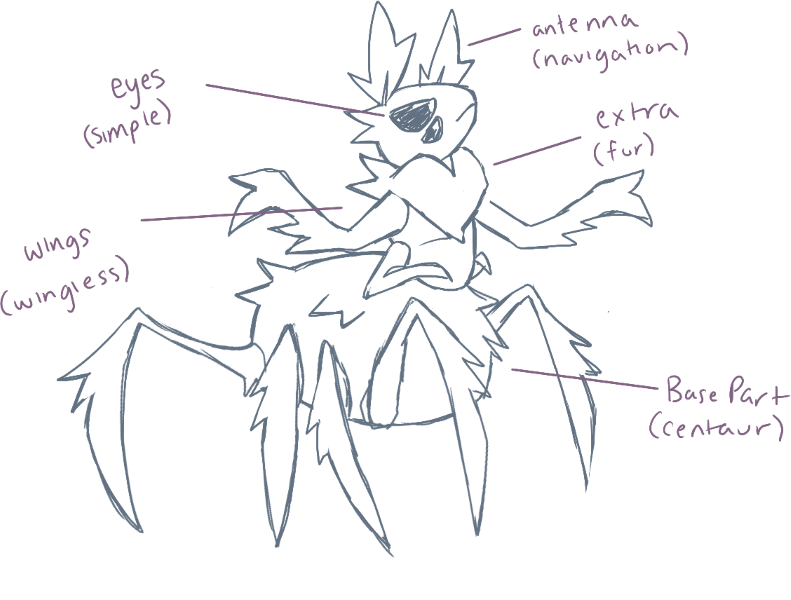 antenna
(navigation)
eyes
(simple)
extra
(fur)
wings
(wingless)
Base Part
(centaur)